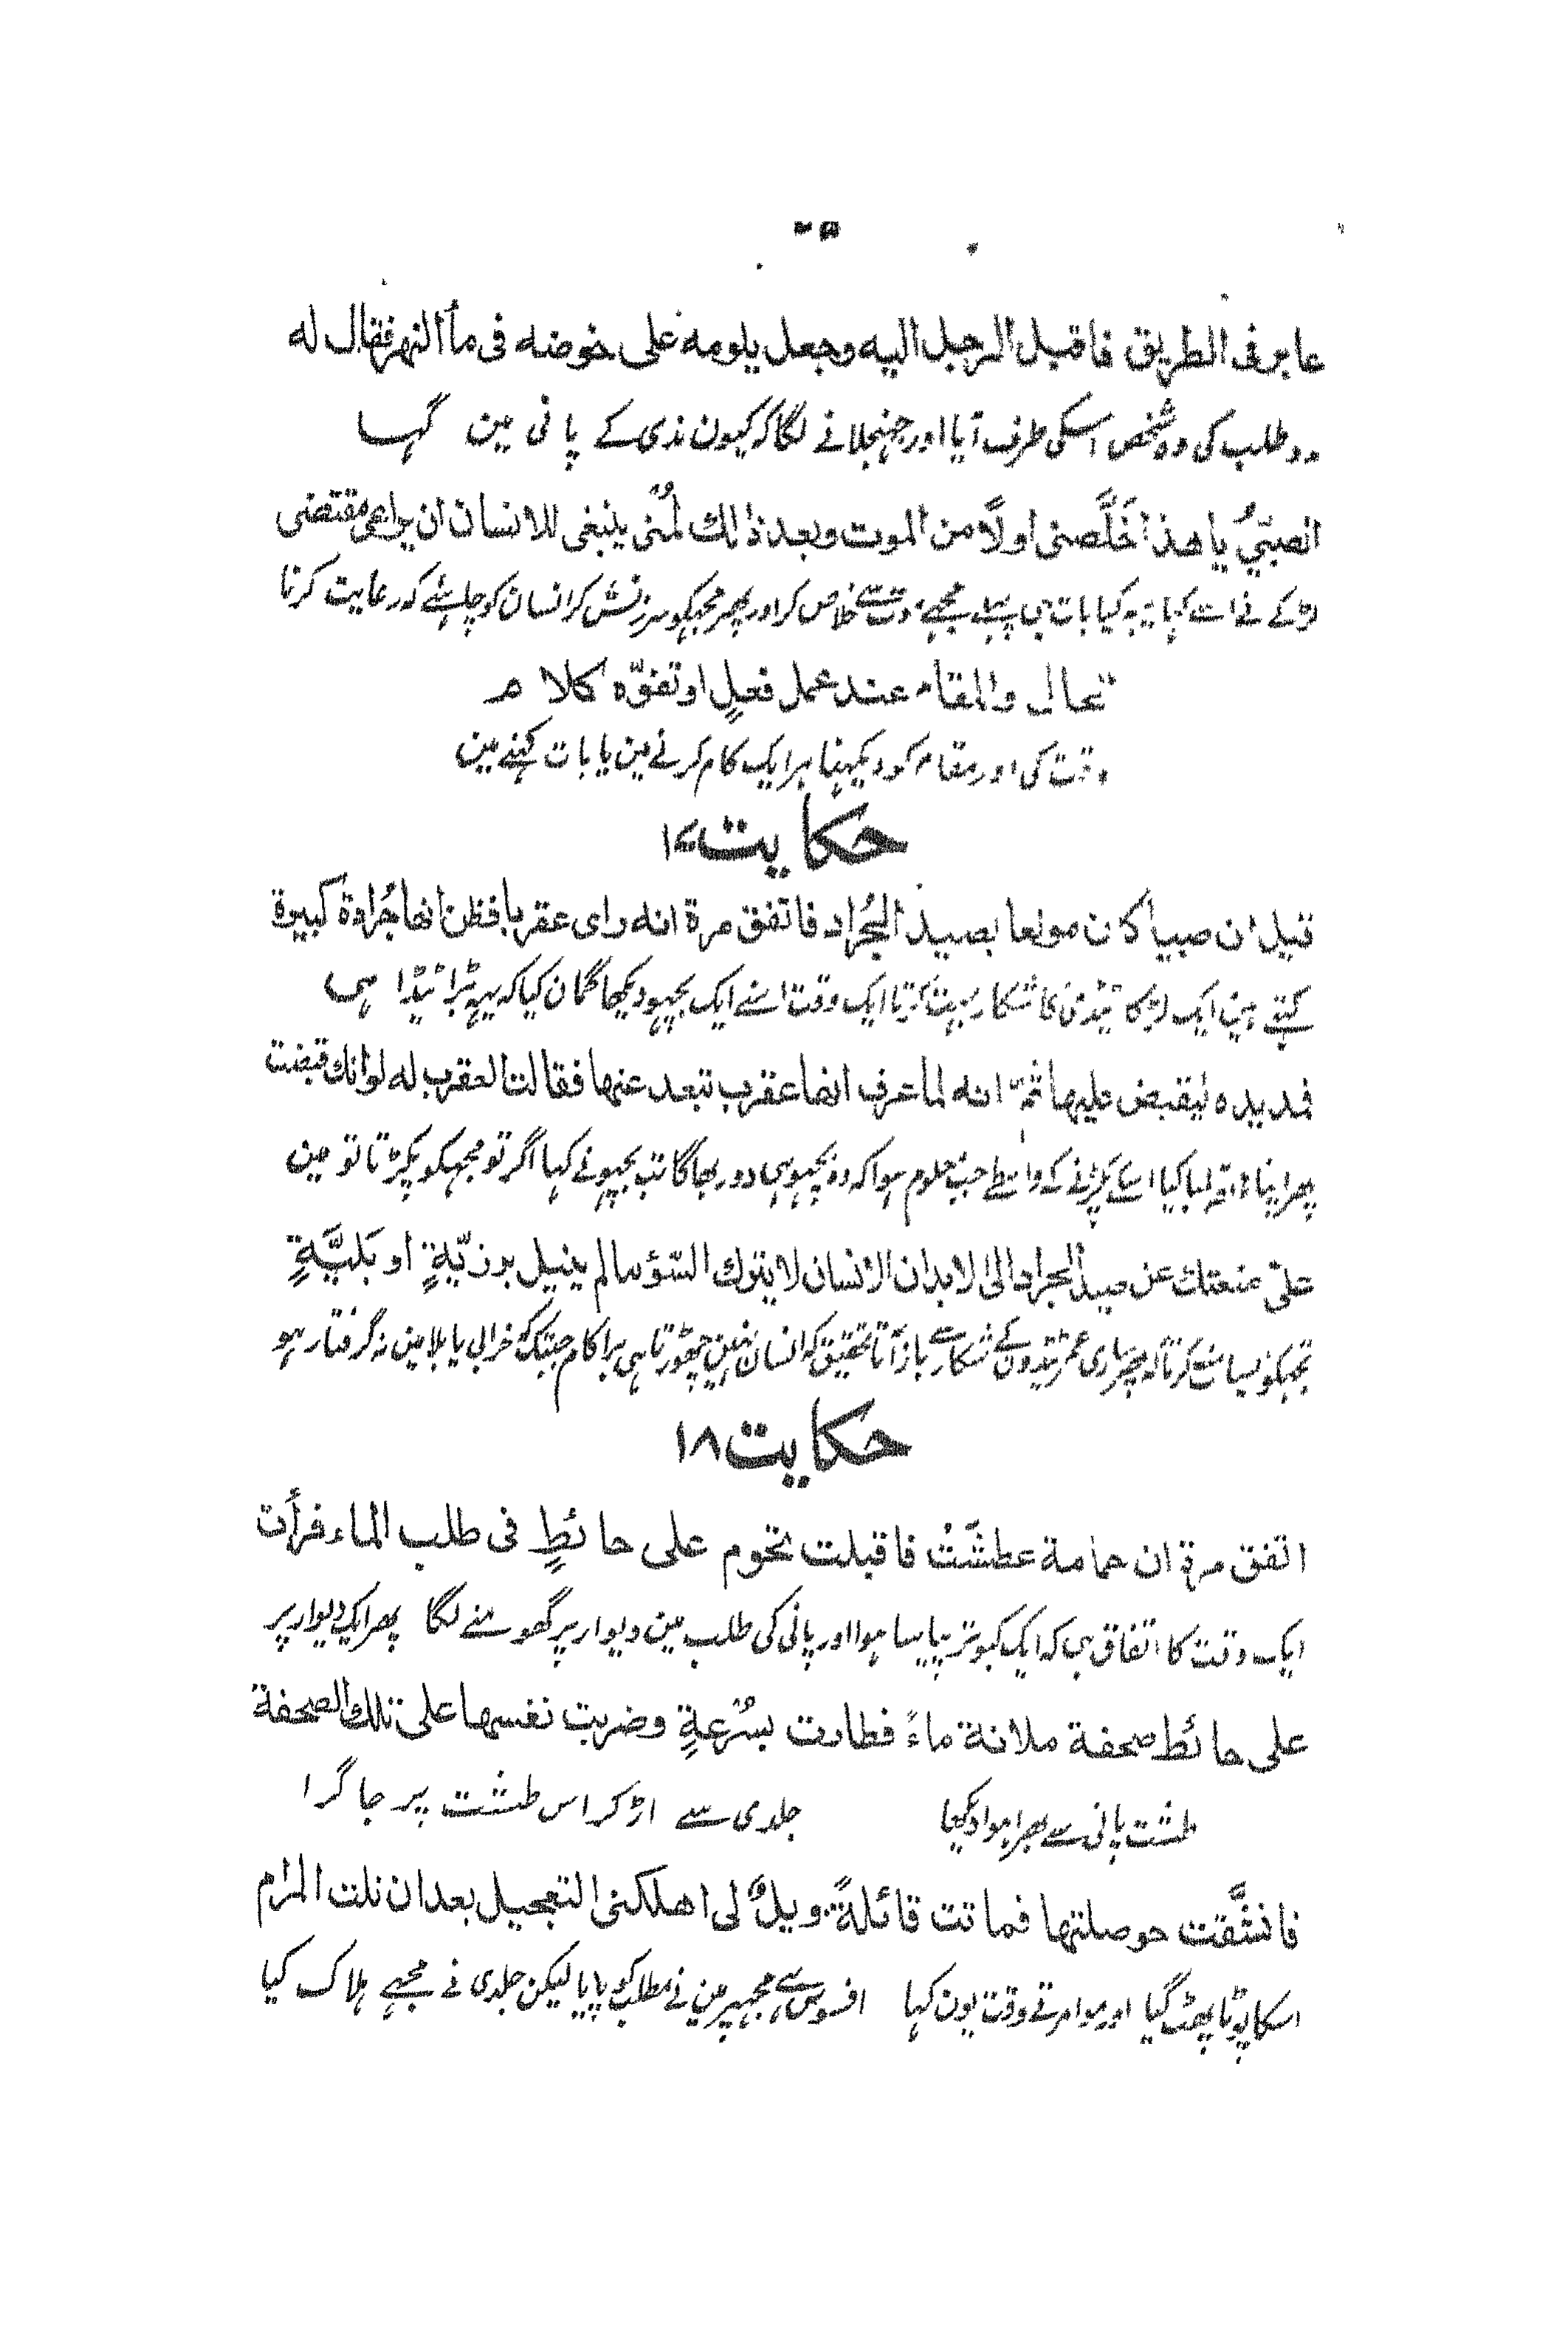 عابر فى الطريق فاقبل الرجل اليه وجعل يلومه على خوضه فى مأ النهر فقال له
مدد طلب كى وه شخص اسكى طرف آيا اور جهنجلانے لگا كه كيون ندى كے پانى مين گهسا
الصبىُّ يا هذا خَلَّصنى اولًا من الموت وبعد ذالك لُمنى ينبغى للانسان ان يراعى مقتضى
لڑكے نے اسے كها يه كيا بات ہى پہلے مجہے موت سے خلاص كر اور پهر مجهكو سرزنش كر انسان كو چاہئے كه رعايت كرنا
الحال والمقام عند عمل فعلٍ او تفوّه كلام
وقت كى اور مقام كو ديكهنا ہر ايک كام كرنے مين يا بات كہنے مين
حكايت ١٧
قيل ان صبيا كان مولعا بصيد الجُراد فاتفق مرة انه راى عقربا فظن انها جُرادة كبيرة
كہتے ہين ايک لڑكا ٹڈى كا شكار بہت كرتا ايک وقت اسنے ايک بچهو ديكها گمان كيا كه يهه بڑا ٹيڈا ہى
فمد يده ليقبض عليها ثمّ انه لما عرف انها عقرب تبعد عنها فقالت العقرب له لوانك قبضت
پهر اپنا ہاته لمبا كيا اسكے پكڑنے كے واسطے جب معلوم ہوا كه وه بچهو ہى دور بهاگا تب بچهو نے كہا اگر تو مجهكو پكڑتا تو مين
علىّ منعتك عن صيد الجراد الى الابد ان الانسان لا يترك السّوء مالم ينيل برزيّةٍ او بَليَّةٍ
تجهكو ايسا منع كرتا كه پهر سارى عمر ٹڈون كے شكار سے باز آتا تحقيق كه انسان نہين چهوڑتا ہى برا كام جبتک كه خرابى يا بلا مين نه گرفتار ہو
حكايت ١٨
اتفق مرة ان حمامة عطشَتْ فاقبلت تحوم على حائطٍ فى طلب الماء فرأت
ايک وقت كا اتفاق ہى كه ايک كبوتر پياسا ہوا اور پانى كى طلب مين ديوار پر گهومنے لگا پهر ايک ديوار پر
على حائط صحفة ملانة ماءً فطارت بسُرعةٍ وضربت نفسها على تلك الصحفة
طشت پانى سے بهرا ہوا ديكها جلدى سے اڑ كر اس طشت پر جا گرا
فانشَّقت حوصلتها فماتت قائلةً ويلٌ لى اهلكنى التعجيل بعد ان نلت المرام
اسكا پوٹا پهٹ گيا اور موا مرتے وقت يون كہا افسوس ہے مجهپر مين نے مطلب كو پايا ليكن جلدى نے مجہے ہلاك كيا